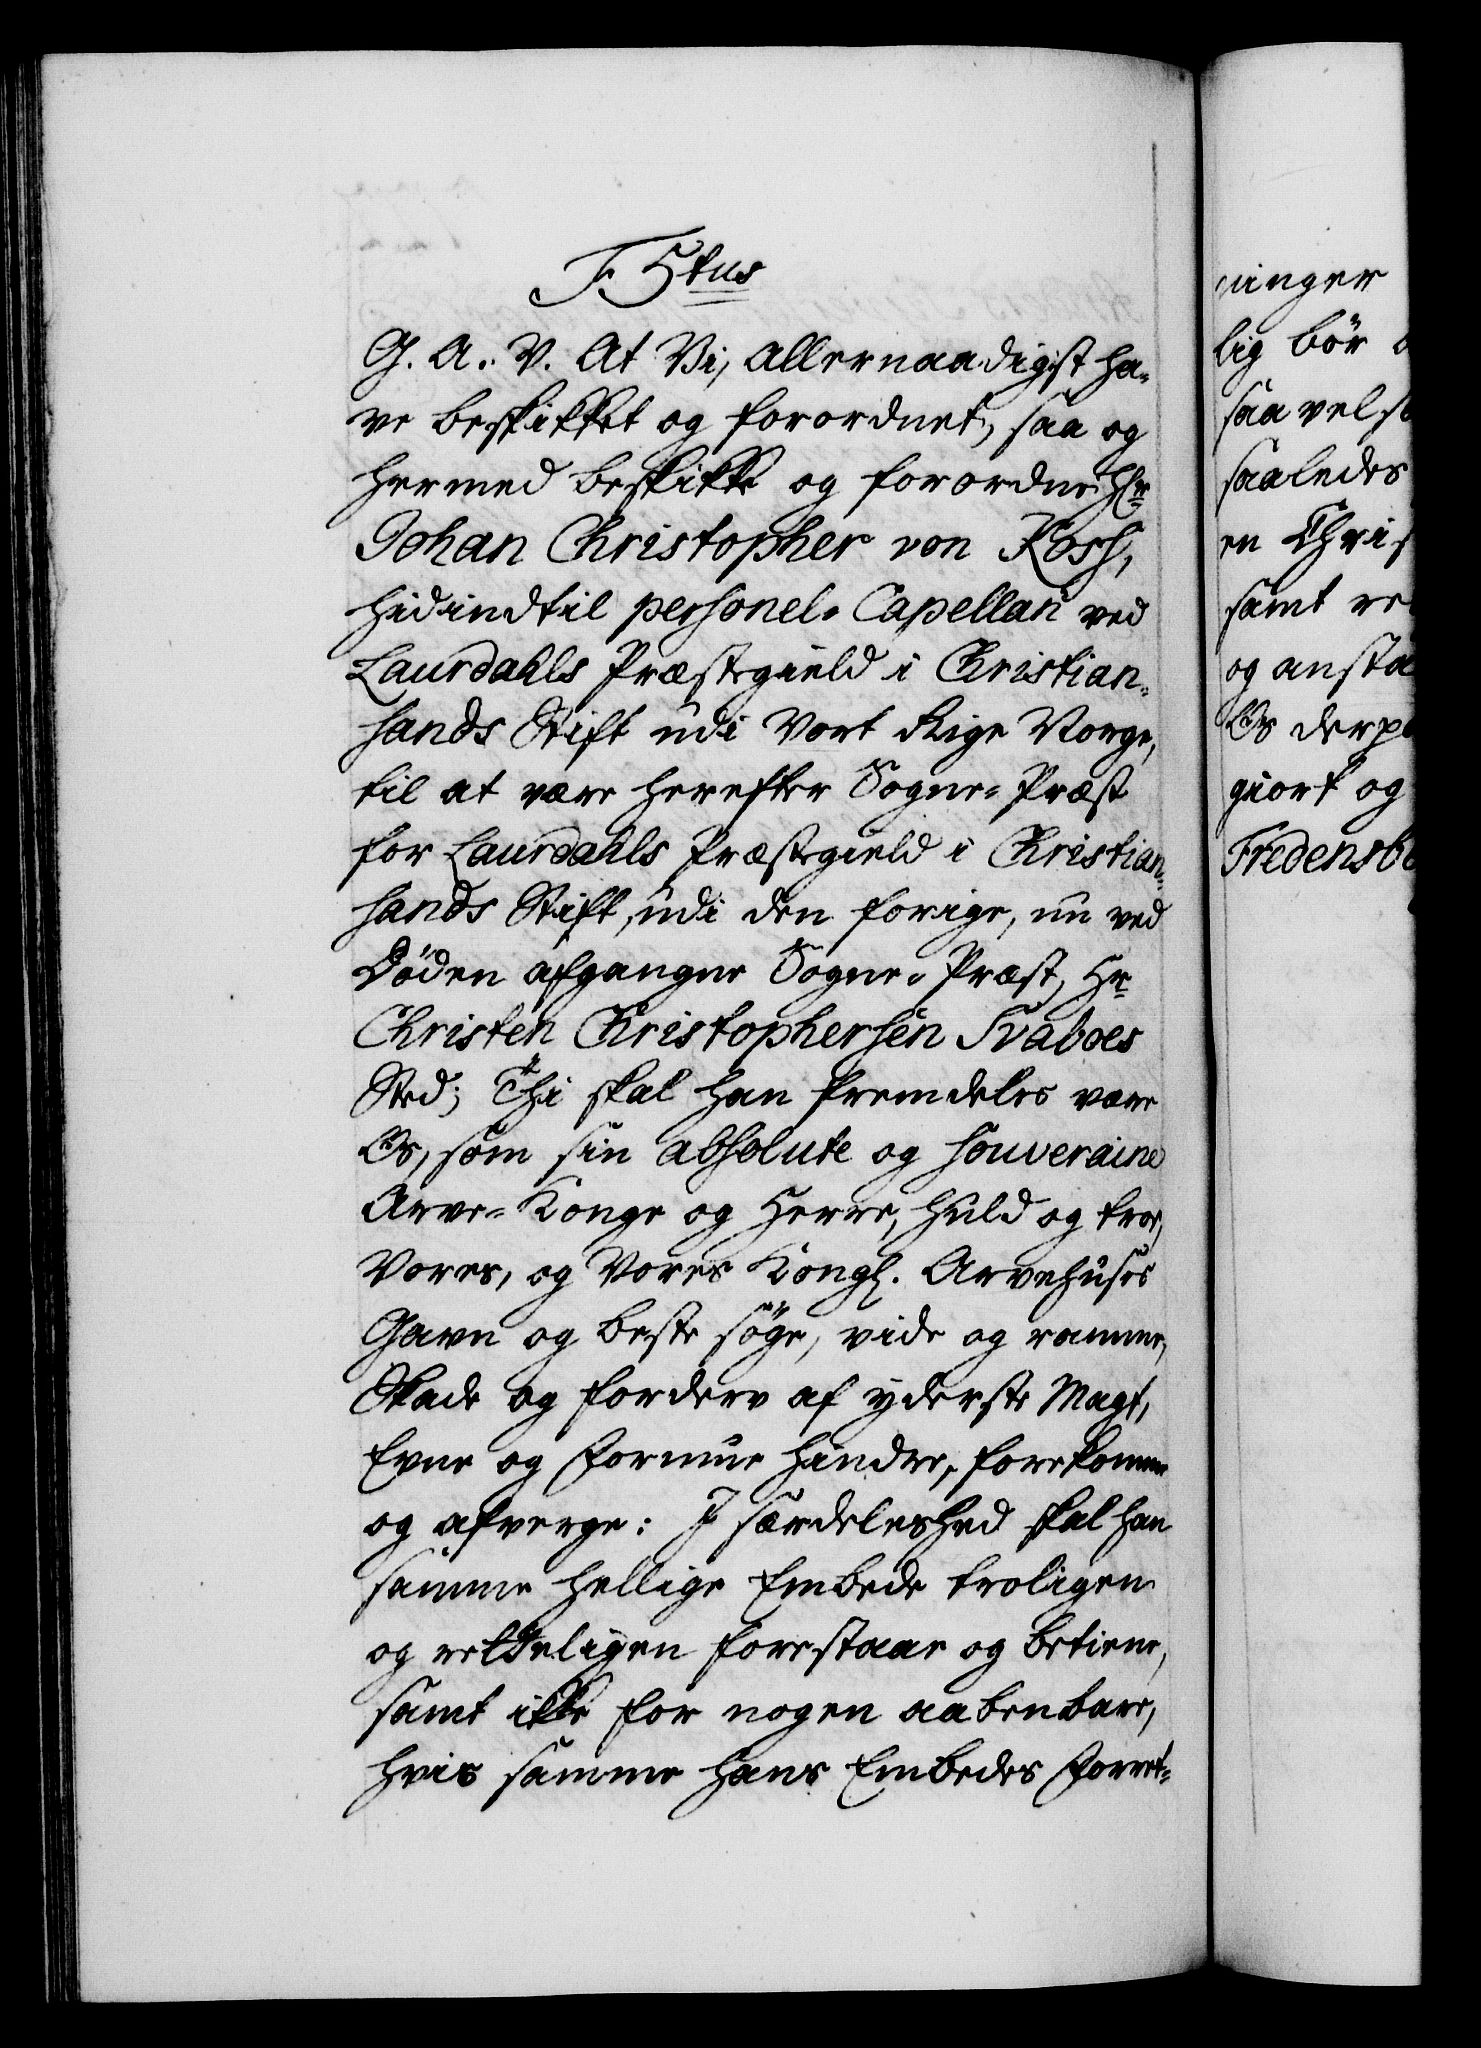 F. 5tus
G. A. V. At Vi, allernaadigst ha-
ve beskikket og forordnet, saa og
hermed beskikke og forordne Hr
Johan Christopher von Kosh,
hidindtil personel-Capellan ved
Laurdahls Præstegield i Christian-
sands Stift udi Vort Rige Norge,
til at være herefter Sogne-Præst
for Laurdahls Præstegield i Christian-
sands Stift, udi den forige, nu ved
Døden afgangne Sogne-Præst, Hr
Christen Christophersen Svaboes
Sted; Thi skal han fremdeles være
Os, som sin absolute og souveraine
Arve-Konge og Herre, huld og troe,
Vores, og Vores Kongl. Arvehuses
Gavn og beste søge, vide og ramme,
Skade og forderv af yderste Magt,
Evne og Formue hindre, forekomme
og afverge: I særdeleshed skal han
samme hellige Embede troligen
og retteligen forestaae og betiene,
samt ikke for nogen aabenbare,
hvis samme hans Embedes Forret-
ninger
lig bør
saavel
saaledes
en
samt
og
Os
giort og